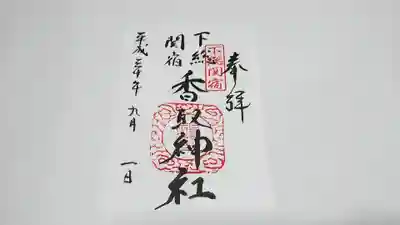 奉拝
下総
関宿
香取神社
平成三十年九月一日